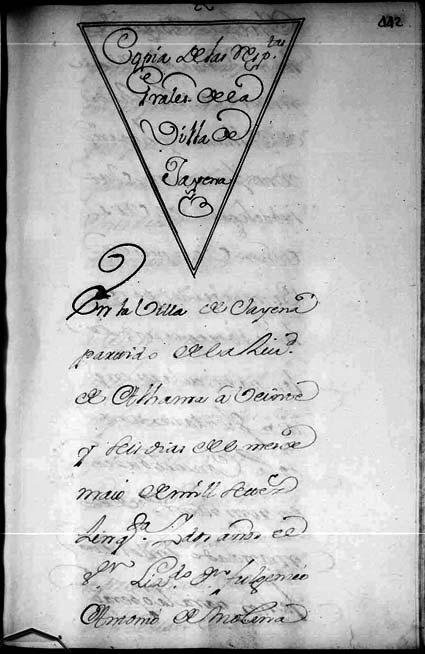 442
Copia de las Resp.tas
Grales. de la
Villa de
Jayena
En la Villa de Jayena
partido de la Ciud.
de Alhama â Veinte
y seis dias de el mes de
maio de mill setez.
Zinq.ta Y dos años el
S.or Liz.do D.n fulgencio
Antonio de Molina